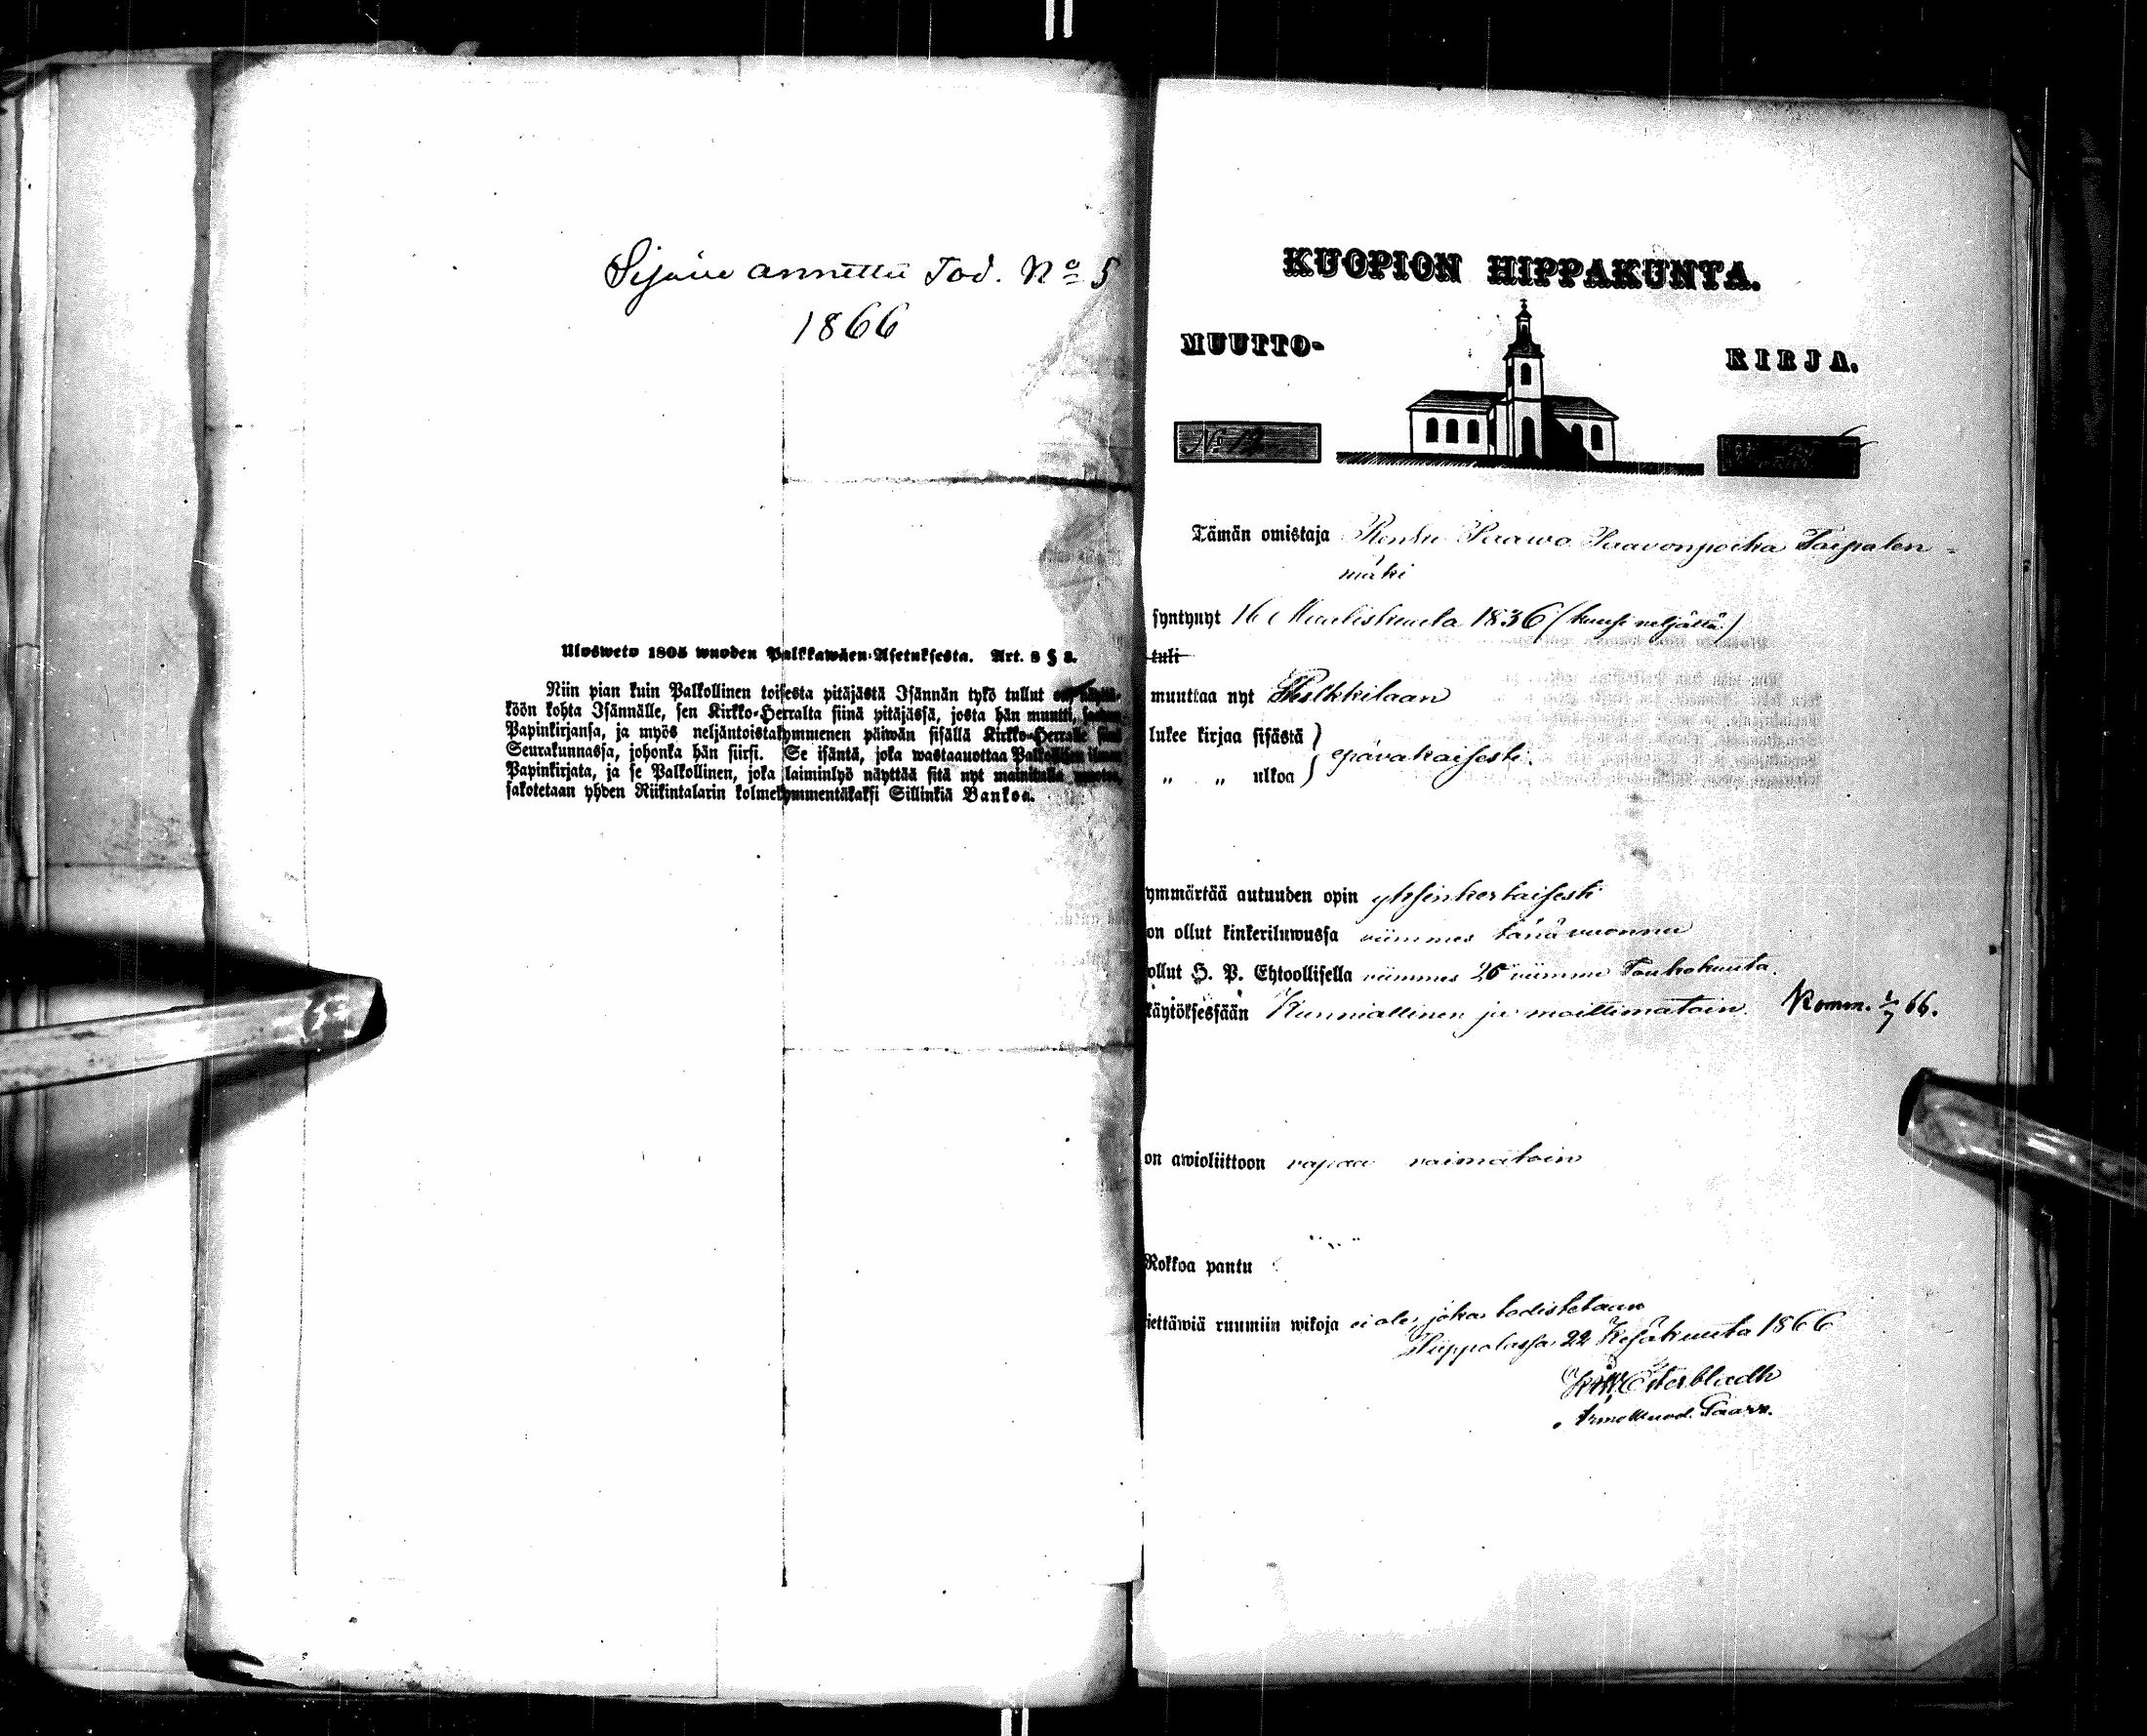 Sijaan annettu Tod. No 5
1866
Ulosweto 1805 wuoden Palkkawäen-Asetuksesta. Art. 8 § 2.
Niin pian kuin Palkollinen toisesta pitäjästä Isännän tykö tullut on,
köön kohta Isännälle, sen Kirkko-Herralta siinä pitäjässä, josta hän muutti,
Papinkirjansa, ja myös neljäntoistakymmenen päiwän sisällä Kirkko-Herralle
Seurakunnassa, johonka hän siirsi. Se isäntä, joka wastaanottaa Palkollisen ilman
Papinkirjata, ja se Palkollinen, joka laiminlyö näyttää sitä nyt mainitulla
sakotetaan yhden Riikintalarin kolmekymmentäkaksi Sillinkiä Bankoa.
KUOPION HIPPAKUNTA.
MUUTTO-
KIRJA.
No 12
Tämän omistaja Renki Paawo Paavonpoika Taipalen-
mäki
syntynyt 16 Maaliskuuta 1836 (kuusi neljättä)
tuli
muuttaa nyt Pulkkilaan
lukee kirjaa sisästä
epävakaisesti.
„ „ ulkoa
ymmärtää autuuden opin yksinkertaisesti
on ollut kinkeriluwussa viimmes tänä vuonna
ollut H. P. Ehtoollisella viimmes 20 viimme Toukokuuta.
käytöksessään Kunniallinen ja moittimatoin. Komm. 1/7 66.
on awioliittoon vapaa naimatoin
Rokkoa pantu
iettäwiä ruumiin wikoja ei ole, joka todistetaan
Piippolassa 22 Kesäkuuta 1866
Österbladh
Armovuod. Saarn.